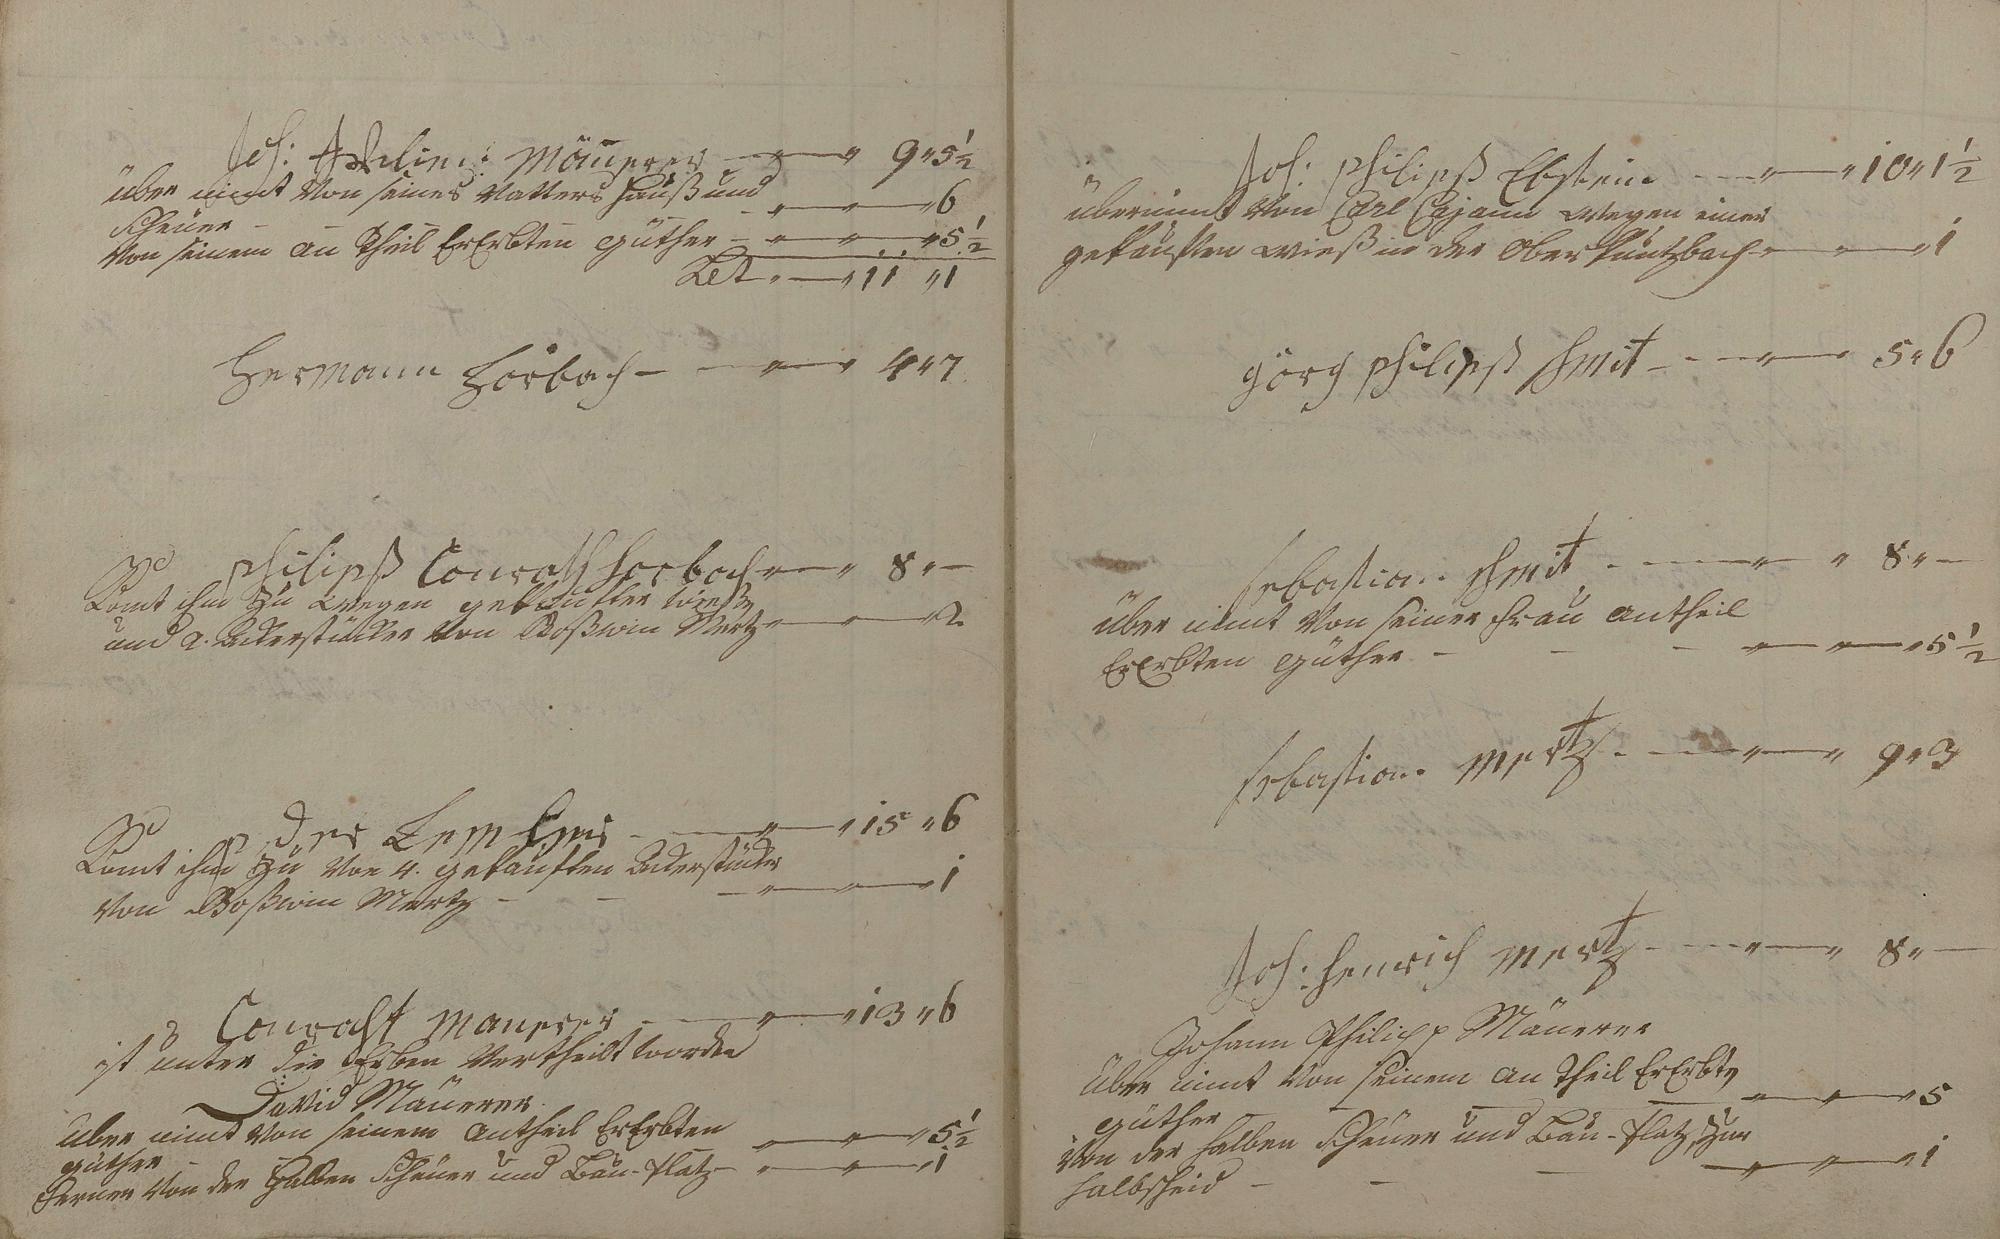 Joh: Mäuerer — " — " 9 " 5 1/2
über nimt Von seines Vatters Hauß und
Scheüer — " — " — " 6
Von seinem an Theil ErErbten güther — " — " — " 5 1/2
Lat " — " 11 " 1
Hermann Horbach — — " — " 4 " 7
philipß Conrath horbach " — " 8 " —
Komt ihm zu wegen gekaufter wieße
und 2. Ackerstücker Von Boßwin Mertz — " — " — 2
Komt ihm zu Von 4. gekauften Ackerstücker
Von Boßwin Mertz — — — " — " — " 1
Conraht mauerer — — " — " 13 " 6
ist unter die Erben Vertheilt worden
David Mäuerer.
über nimt Von seinem antheil ErErbten
güther — " — " — " 5 1/2
Ferner Von der halben Scheüer und Bau-Platz — " — " — " 1
Joh: philipß Ebstein — — " — " 10 " 1 1/2
übernimt Von Carl Cajann wegen einer
gekauften wieß in der Ober — " — " — " 1
görg philipß schmit — — " — " 5 " 6
sebastian schmit — — " — " 8 " —
über nimt Von seiner Frau antheil
ErErbten güther — — — " — " — " 5 1/2
sebastian mertz — — " — " 9 " 3
Joh: henrich mertz — — " — " 8 " —
Johann Philipp Mäuerer
über nimt Von seinem an Theil ErErbte
güther — — — " — " — " 5
Von der halben Scheüer und Bau-Platz, Zur
halbscheid — — — " — " — " 1